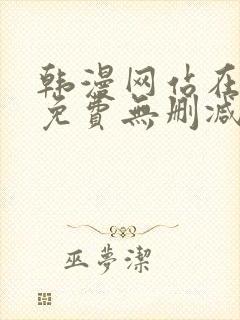 韩漫网站在
免費無删减
巫夢潔